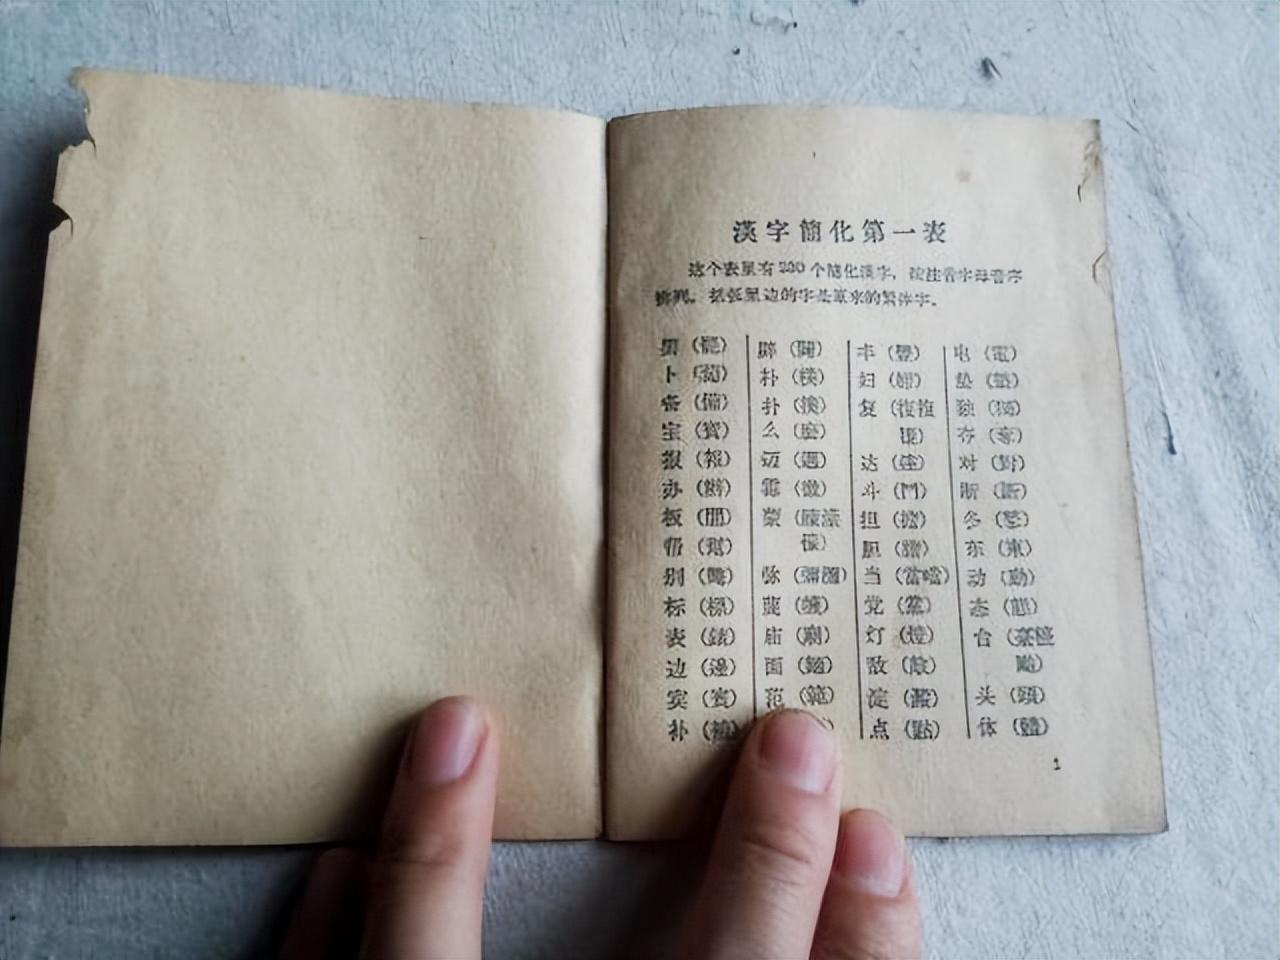 漢字簡化第一表
这个表里有 230 个簡化漢字，按注音字母音序
排列。括弧里边的字是原来的繁体字。
罢（罷）
卜（蔔）
备（備）
宝（寶）
报（報）
办（辦）
板（闆）
帮（幫）
别（彆）
标（標）
表（錶）
边（邊）
宾（賓）
补（補）
辟（闢）
朴（樸）
扑（撲）
么（麼）
迈（邁）
霉（黴）
蒙（矇濛
懞）
弥（彌瀰）
蔑（衊）
庙（廟）
面（麵）
范（範）
丰（豐）
妇（婦）
复（復複
覆）
达（達）
斗（鬥）
担（擔）
胆（膽）
当（當噹）
党（黨）
灯（燈）
敌（敵）
淀（澱）
点（點）
电（電）
垫（墊）
独（獨）
夺（奪）
对（對）
断（斷）
冬（鼕）
东（東）
动（動）
态（態）
台（臺檯
颱）
头（頭）
体（體）
1